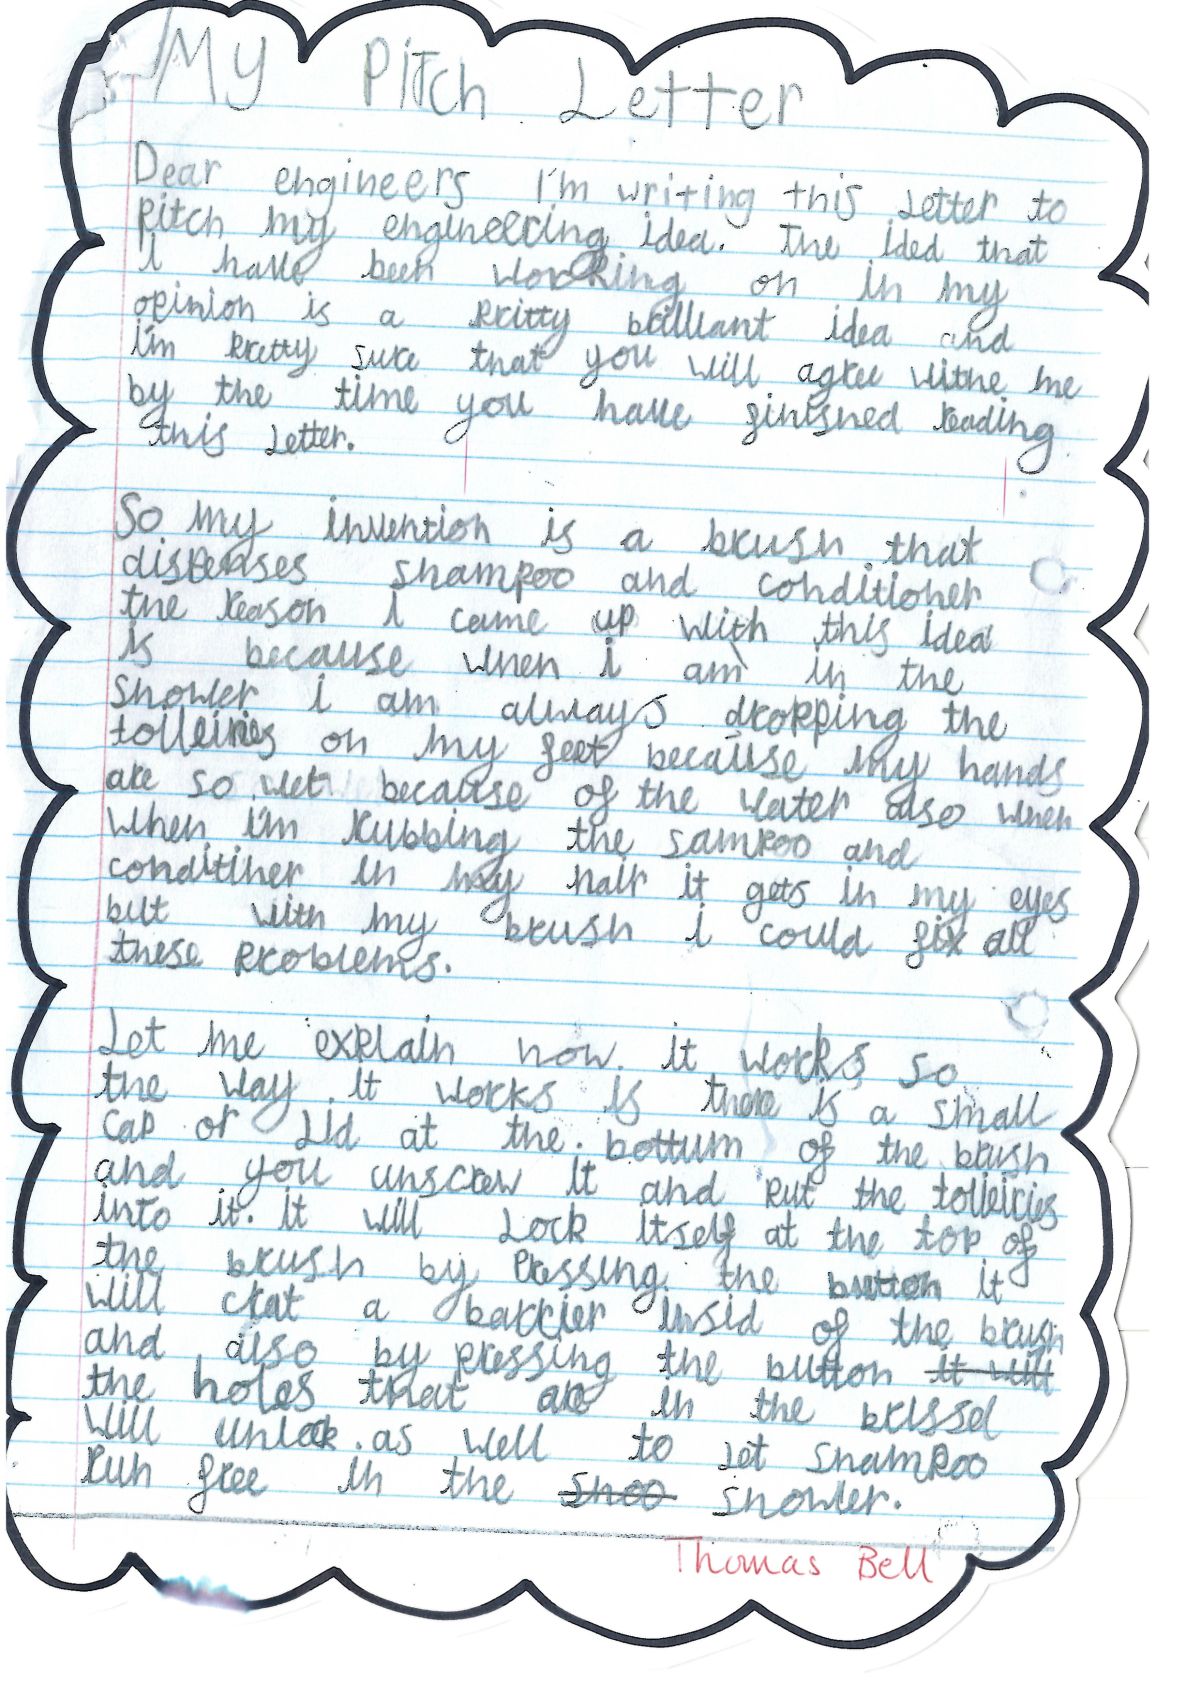 My Pitch Letter
Dear engineers I'm writing this Letter to
pitch my engineering idea. The idea that
I have been working on in my
opinion is a pritty brilliant idea and
i'm pretty sure that you will agree withe me
by the time you have finished reading
this Letter.
So my invention is a brush that
dispenses shampoo and conditioner
the reason I came up with this idea
is because when i am in the
shower i am always dropping the
tolleiries on my feet because my hands
are so wet because of the water also when
when i'm rubbing the sampoo and
conditiner in my hair it gets in my eyes
but with my brush i could fix all
these problems.
Let me explain now it works so
the way it works is there is a small
cap or Lid at the bottum of the brush
and you unscrew it and put the tolleiries
into it. it will Lock itself at the top of
the brush by pressing the button it
will crat a barrier insid of the brush
and also by pressing the button it will
the holes that are in the brissel
will unlock as well to Let shampoo
run free in the shoo shower.
Thomas Bell